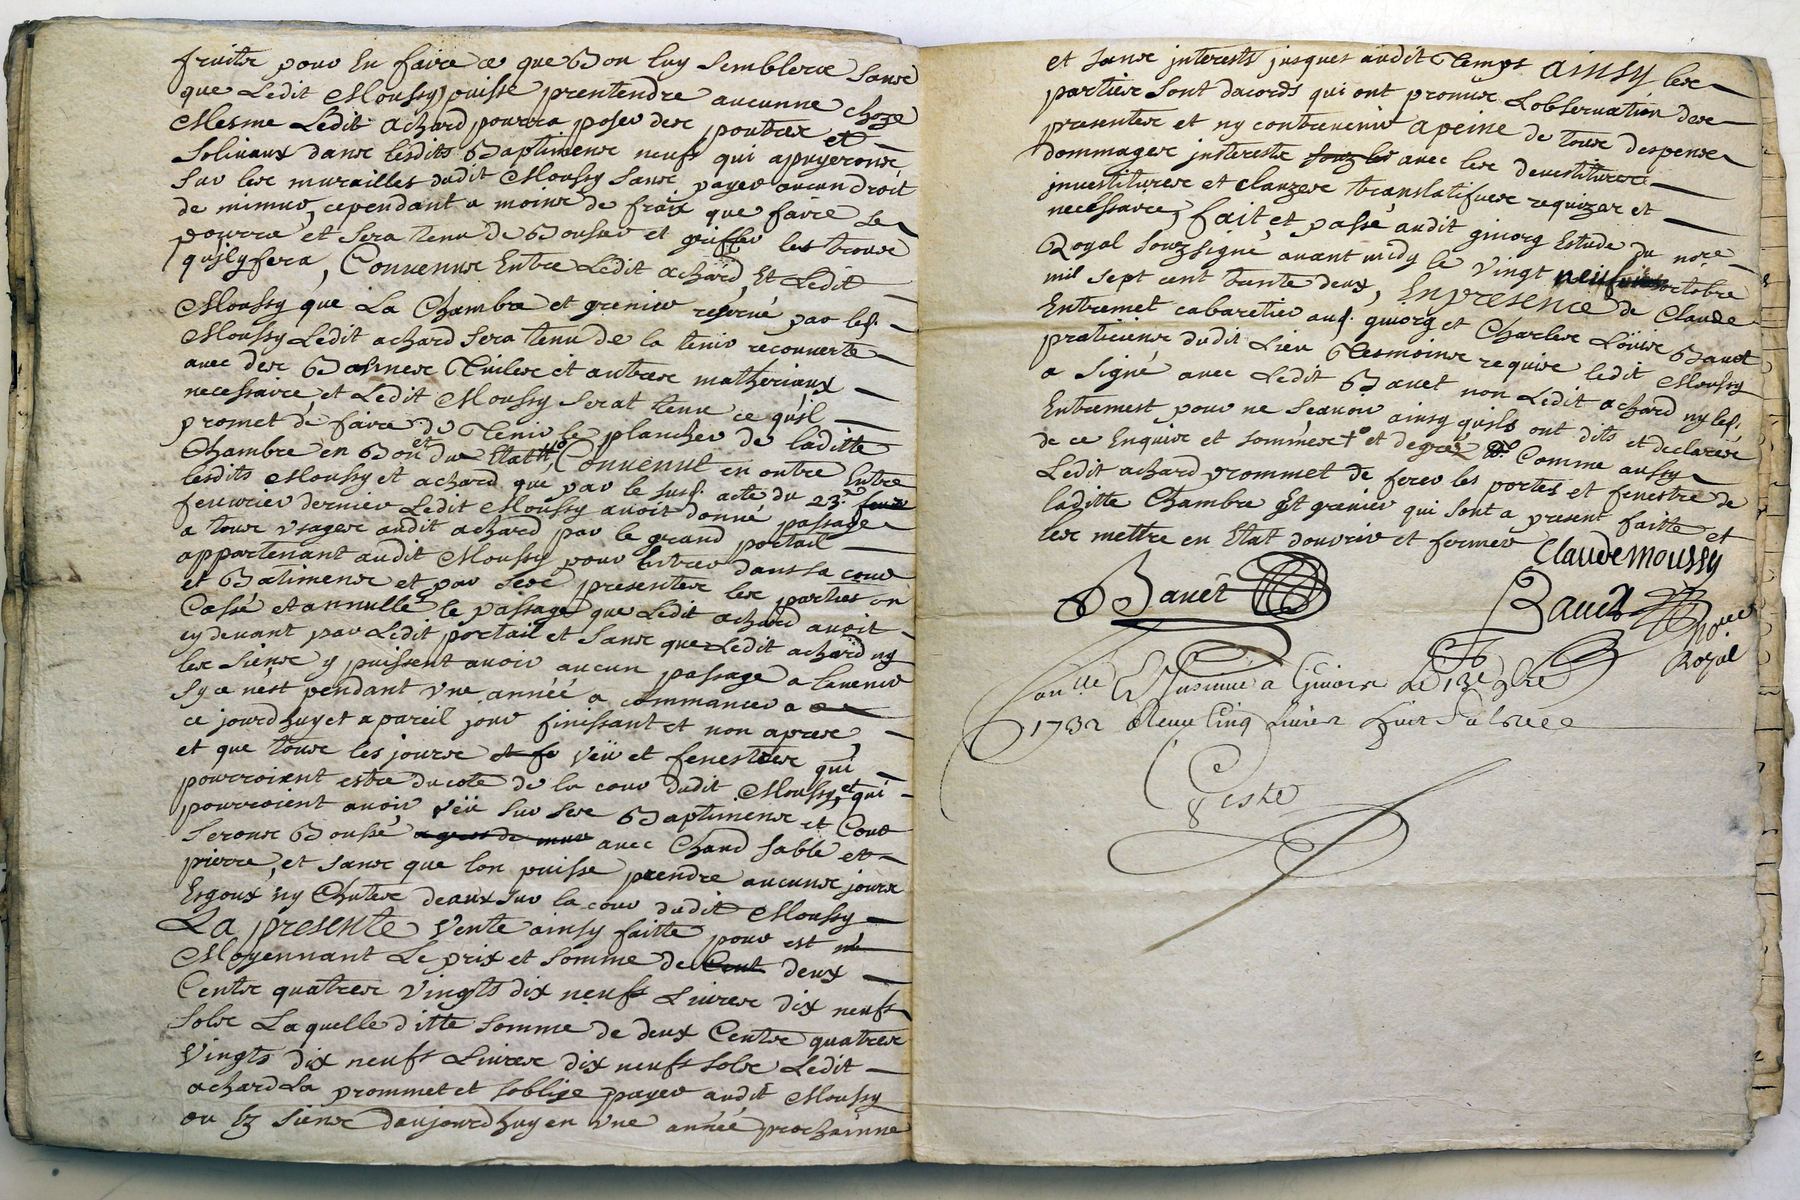 fruits pour En faire ce que Bon luy Semblera Sans
que Ledit Moussy puisse prentendre aucunne choze
Mesme Ledit achard pourra poser des poutres et
Soliuaux dans lesdits Baptimens neufs qui apuyerons
Sur les murailles dudit Moussy Sans payer aucun droit
de mimur, cependant a moins de fraix que faire Se
pourra et Sera tenu de Boucher et griffer les trous
quil y fera, Conuenus Entre Ledit achard Et Ledit
Moussy que La Chambre et grenier reserué par les.
Moussy Ledit achard Sera tenu de la tenir recouuerte
avec des Bonnes Tuiles et autres matheriaux
necessaire et Ledit Moussy Serat tenu ce quil
promet de faire de Tenir le plancher de laditte
Chambre en Bon et due Estat, Conuenut en outre Entre
lesdits Moussy et achard que par le susd. acte du 23e.
feuurier dernier Ledit Moussy auoit donné passage
a tous vsages audit achard par le grand portail
appartenant audit Moussy pour Entrer dans sa cour
et Batimens et par Ses presentes les parties on
Cassé et annullé le passage que Ledit achard auoit
cy deuant par Ledit portail et Sans que Ledit achard ny
les Siens y puissent auoir aucun passage a lauenir
Sy ce nest pendant vne année a commancer a
ce jourdhuy et a pareil jour finissant et non apres,
et que tous les jours veü et fenestres qui
pourroient estre du coté de la cour dudit Moussy, et qui
pourroient auoir veü sur ses Baptimens et Cour
Serons Bouché avec Chaud Sable et
pierre, et sans que lon puisse prendre aucuns jours
Esgoux ny Chutes deaux sur la cour dudit Moussy
La presente Vente ainsy faitte pour et
Moyennant Le prix et Somme de Cent deux
Cents quatres vingts dix neufs Liures dix neufs
Sols Laquelle ditte Somme de deux Cents quatres
Vingts dix neufs Liures dix neufs Sols Ledit
achard La prommet et Soblige payer audit Moussy
ou Ez Siens daujourdhuy en vne année prochainne
et Sans interests jusques audit Temps ainsy les
parties Sont dacords qui ont promis Lobseruation des
presentes et ny contreuenir a peine de tous despens
dommages jnterests souz les avec les deuestitures
jnuestitures et clauzes translatifues requizes et
necessaires, fait et passé audit giuorg Estude du nore
Royal Souzsigné auant midy le vingt neuf octobre
mil sept cent trente deux, En presence de Claude
Entremet cabaretier aud. giuorg et Charles Loüis Bauet
praticiens dudit Lieu Tesmoins requis ledit Moussy
a Signé avec Ledit Bauet non Ledit achard ny led.
Entremest pour ne Scauoir ainsy quils ont dits et declarés
de ce Enquis et sommés et degrés Comme aussy
Ledit achard prommet de ferer les portes et fenestre de
laditte Chambre Et grenier qui Sont a present faitte et
les mettre en Estat douurir et fermer
Claude moussy
Bauet
Bauet
Nore
Royal
Con.lle & Jnsinué a Giuors Le 13e 9bre
1732 Receu Cinq Liures huit Sols
Geste